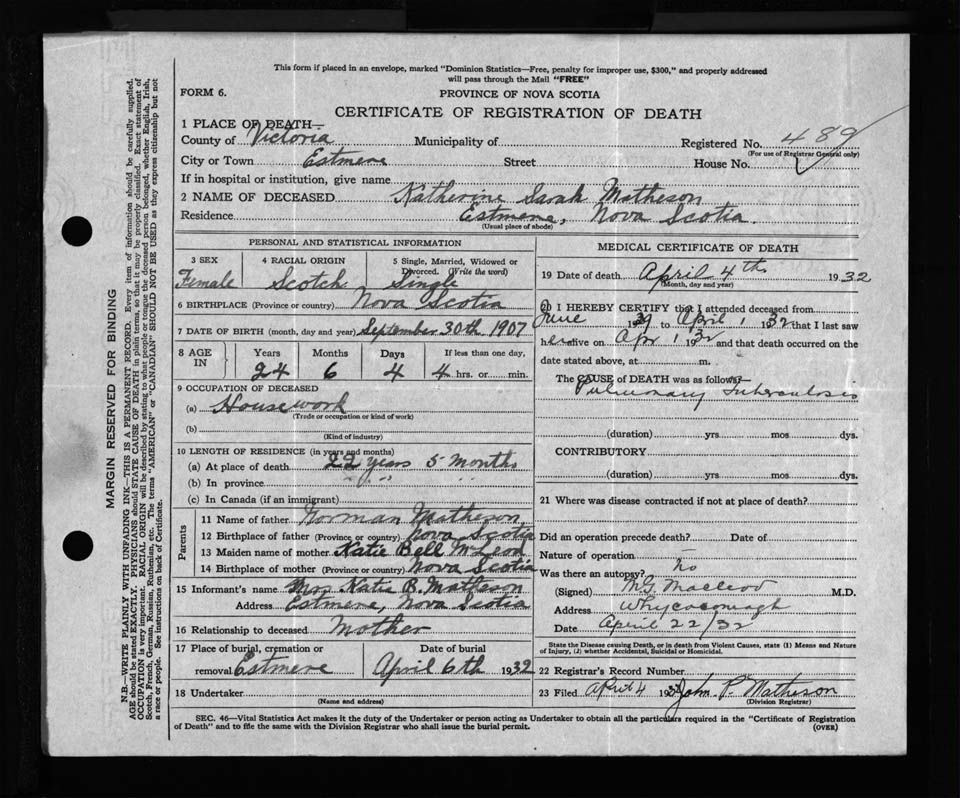 This form if placed in an envelope, marked "Dominion Statistics—Free, penalty for improper use, $300," and properly addressed
will pass through the Mail "FREE"
FORM 6.
PROVINCE OF NOVA SCOTIA
CERTIFICATE OF REGISTRATION OF DEATH
1 PLACE OF DEATH—
County of Victoria Municipality of Registered No. 489
(For use of Registrar General only)
City or Town Estmere Street House No.
If in hospital or institution, give name
2 NAME OF DECEASED Katherine Sarah Matheson
Residence Estmere, Nova Scotia.
(Usual place of abode)
PERSONAL AND STATISTICAL INFORMATION
3 SEX
Female
4 RACIAL ORIGIN
Scotch
5 Single, Married, Widowed or
Divorced. (Write the word)
Single
6 BIRTHPLACE (Province or country) Nova Scotia
7 DATE OF BIRTH (month, day and year) September 30th 1907
8 AGE IN
Years Months Days If less than one day,
24 6 4 4 hrs. or min.
9 OCCUPATION OF DECEASED
(a) Housework
(Trade or occupation or kind of work)
(b)
(Kind of industry)
10 LENGTH OF RESIDENCE (in years and months)
(a) At place of death 22 years 5 months
(b) In province " " " "
(c) In Canada (if an immigrant)
Parents
11 Name of father Norman Matheson,
12 Birthplace of father (Province or country) Nova Scotia
13 Maiden name of mother Katie Bell McLeod
14 Birthplace of mother (Province or country) Nova Scotia
15 Informant's name Mrs. Katie B. Matheson
Address Estmere, Nova Scotia
16 Relationship to deceased Mother
17 Place of burial, cremation or
removal Estmere
Date of burial
April 6th 1932
18 Undertaker
(Name and address)
MEDICAL CERTIFICATE OF DEATH
19 Date of death April 4th 1932
(Month, day and year)
20 I HEREBY CERTIFY that I attended deceased from
June 1931 to April 1 1932 that I last saw
her alive on Apr 1 1932 and that death occurred on the
date stated above, at m.
The CAUSE of DEATH was as follows:
Pulmonary Tuberculosis
(duration) yrs mos dys.
CONTRIBUTORY
(duration) yrs mos dys.
21 Where was disease contracted if not at place of death?
Did an operation precede death? Date of
Nature of operation —
Was there an autopsy? No
(Signed) M.G. Macleod M.D.
Address Whycocomagh
Date April 22/32
State the Disease causing Death, or in death from Violent Causes, state (1) Means and Nature
of Injury, (2) whether Accidental, Suicidal or Homicidal.
22 Registrar's Record Number
23 Filed April 4 193 John P. Matheson
(Division Registrar)
SEC. 46—Vital Statistics Act makes it the duty of the Undertaker or person acting as Undertaker to obtain all the particulars required in the "Certificate of Registration
of Death" and to file the same with the Division Registrar who shall issue the burial permit.
(OVER)
MARGIN RESERVED FOR BINDING
N.B.—WRITE PLAINLY WITH UNFADING INK—THIS IS A PERMANENT RECORD. Every item of information should be carefully supplied.
AGE should be stated EXACTLY. PHYSICIANS should STATE CAUSE OF DEATH in plain terms, so that it may be properly classified. Exact statement of
OCCUPATION is very important. RACIAL ORIGIN will be described by stating to what people or tongue the deceased person belonged, whether English, Irish,
Scotch, French, German, Russian, Ruthenian, etc. The terms "AMERICAN" or "CANADIAN" SHOULD NOT BE USED as they express citizenship but not
a race or people. See instructions on back of Certificate.